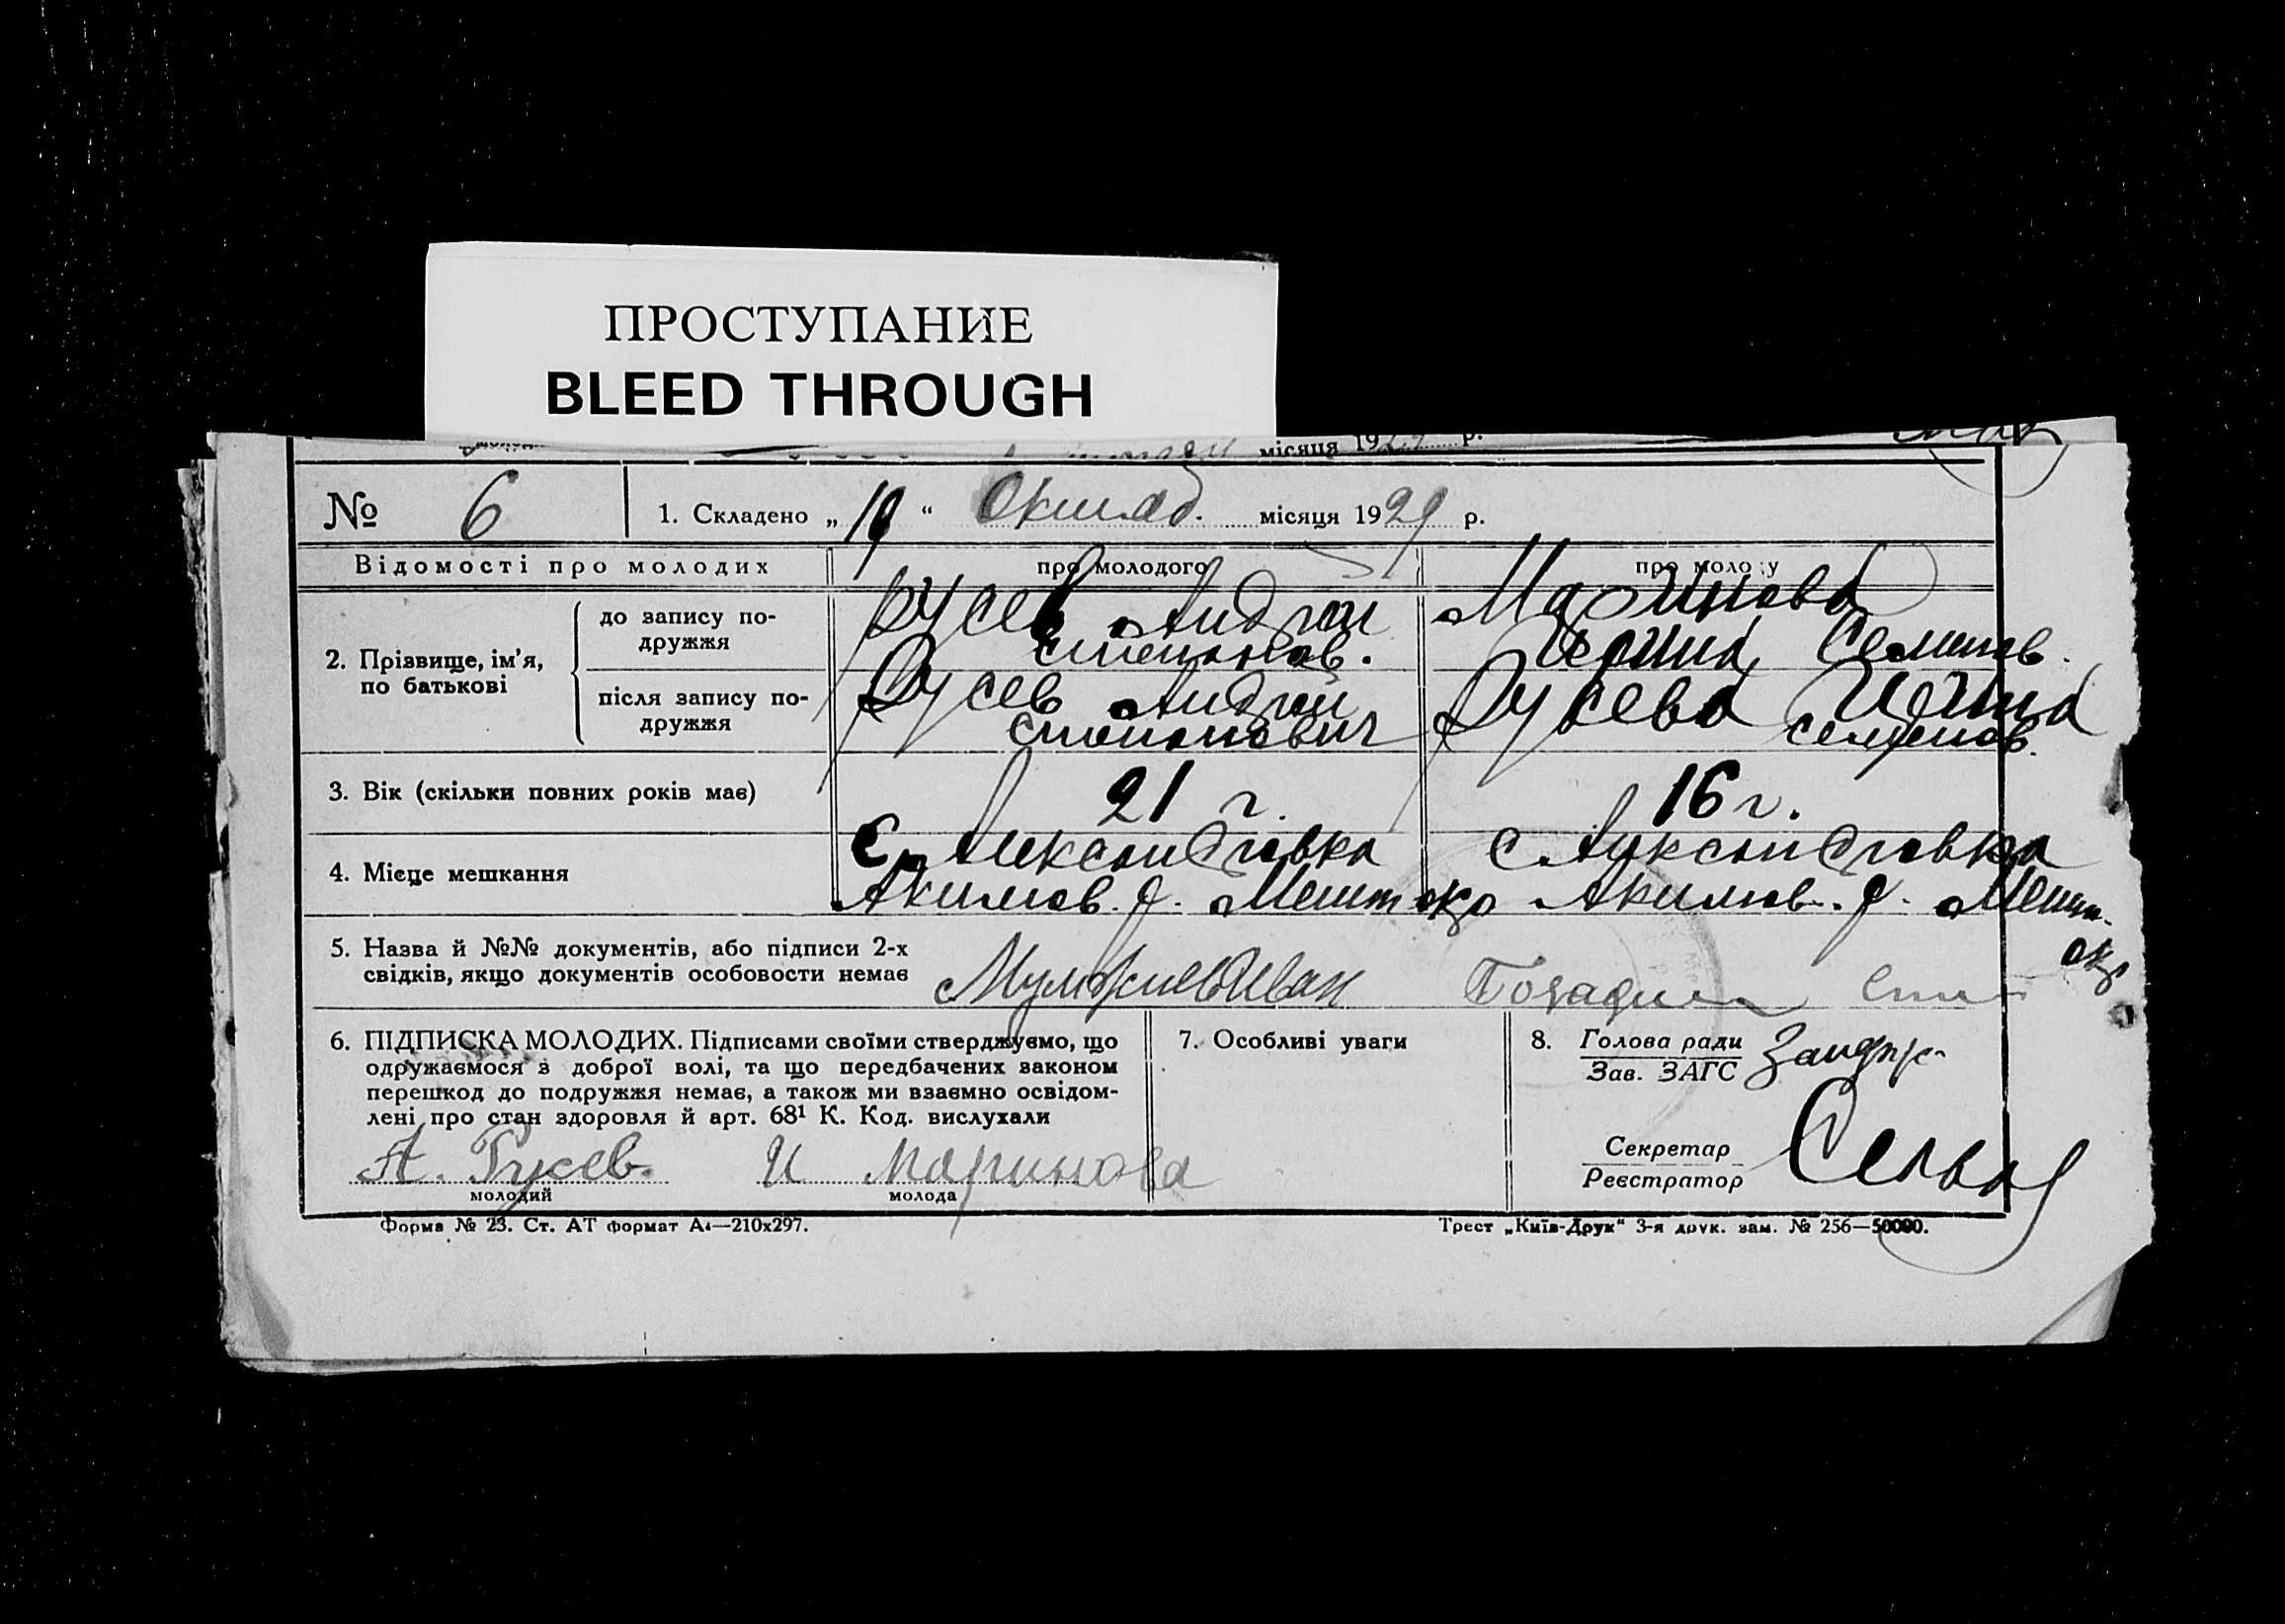 ПРОСТУПАНИЕ
BLEED THROUGH
місяця 1929 р.
№ 6 1. Складено „19“ Октяб. місяця 1929 р.
Відомості про молодих про молодого про молоду
2. Прізвище, ім’я, по батькові
до запису по-
дружжя
Гусев Андрей
Степанов.
Маринова
Ирина Семенов.
після запису по-
дружжя
Гусев Андрей
Степанович
Гусева Ирина
Семенов.
3. Вік (скільки повних років має) 21 г. 16 г.
4. Місце мешкання
с. Александровка
Акимов. р. Мелит окр
с Александровка
Акимов. р. Мелит.
окр
5. Назва й №№ документів, або підписи 2-х
свідків, якщо документів особовости немає
Иван
6. ПІДПИСКА МОЛОДИХ. Підписами своїми стверджуємо, що
одружаємося з доброї волі, та що передбачених законом
перешкод до подружжя немає, а також ми взаємно освідом-
лені про стан здоровля й арт. 68¹ К. Код. вислухали
А. Гусев. И Маринова
молодий молода
7. Особливі уваги
8. Голова ради
Зав. ЗАГС
Секретар
Реєстратор
Форма № 23. Ст. АТ формат А4—210х297.
Трест „Київ-Друк“ 3-я друк. зам. № 256—50000.